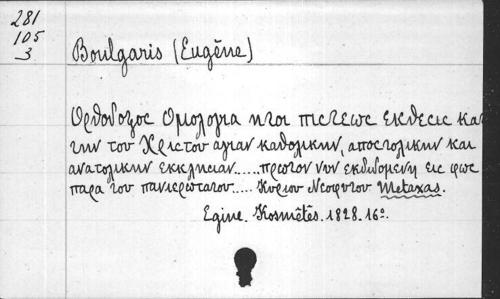 281
105
3
Boulgaris (Eugène)
Ορθοδοξος Ομολογια ητοι πιστεως εκθεσις κα
την του Χριστου αγιαν καθολικην, αποστολικην και
ανατολικην εκκλησιαν..... πρωτον νυν εκδιδομενη εις φως
παρα του πανιερωτατου..... Κυριου Νεοφυτου Metaxas.
Egine. Kosmêtês. 1828. 16º.